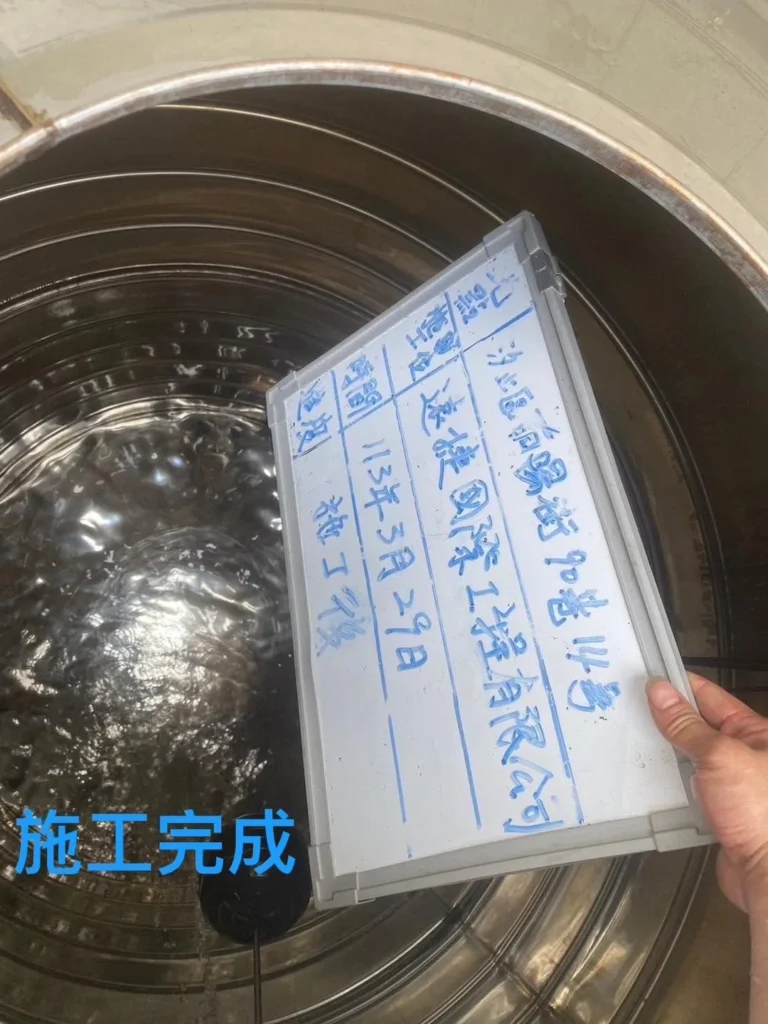 地點 汐止區南陽街90巷14号
施工單位 遠捷國際工程有限公司
時間 113年3月29日
進度 施工後
施工完成